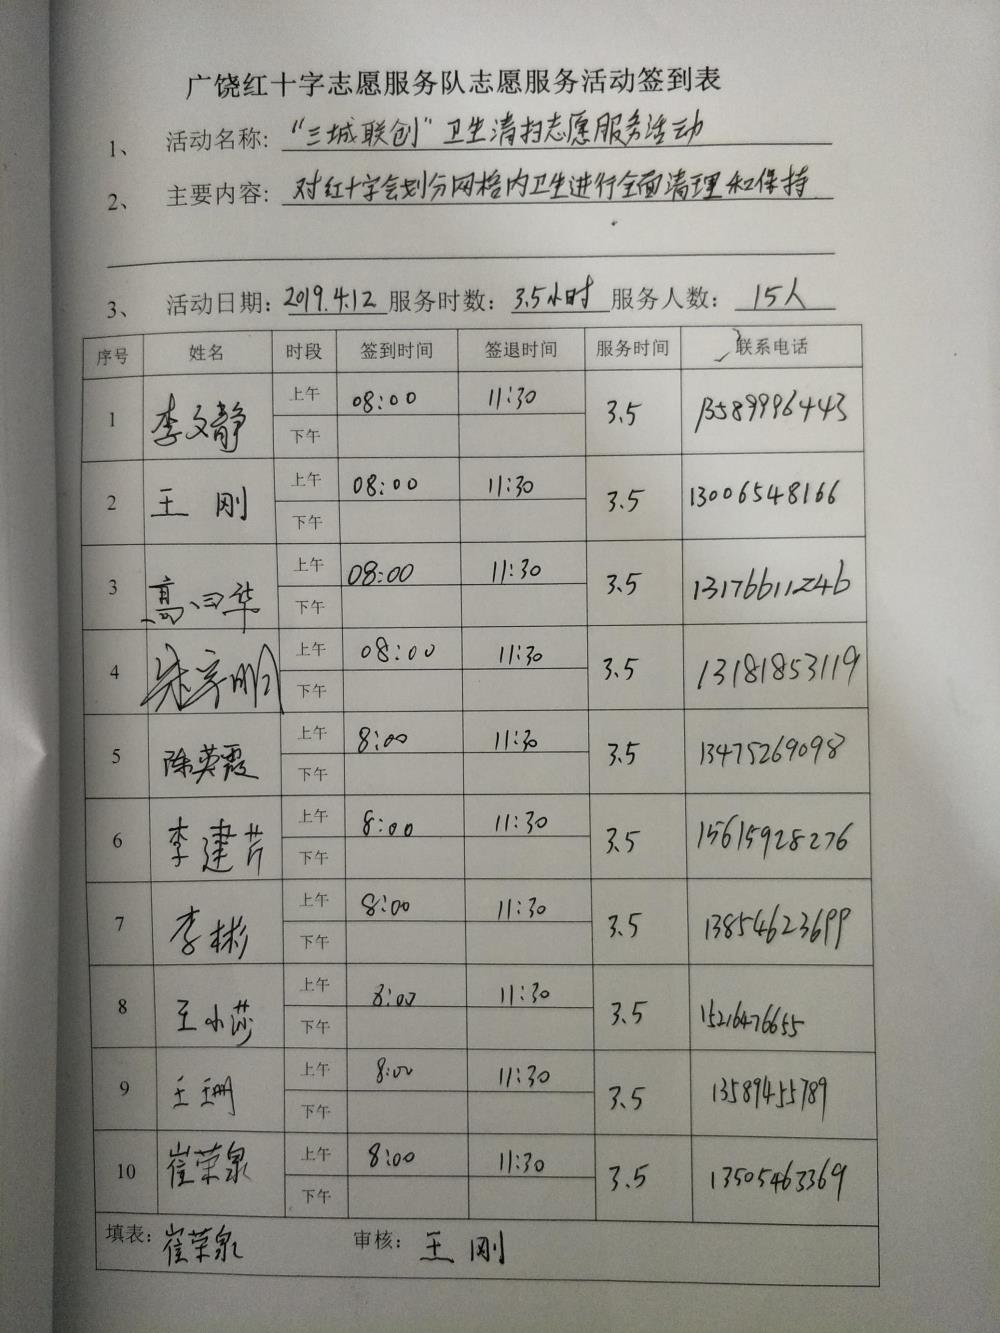 广饶红十字志愿服务队志愿服务活动签到表
1、 活动名称: “三城联创”卫生清扫志愿服务活动
2、 主要内容: 对红十字会划分网格内卫生进行全面清理和保持
3、 活动日期: 2019.4.12 服务时数: 3.5小时 服务人数: 15人
序号 姓名 时段 签到时间 签退时间 服务时间 联系电话
1 李文静 上午 08:00 11:30 3.5 13589996443
下午
2 王刚 上午 08:00 11:30 3.5 13006548166
下午
3 高 华 上午 08:00 11:30 3.5 13176611246
下午
4 上午 08:00 11:30 3.5 13181853119
下午
5 陈英霞 上午 8:00 11:30 3.5 13475269098
下午
6 李建芹 上午 8:00 11:30 3.5 15615928276
下午
7 李彬 上午 8:00 11:30 3.5 13854623699
下午
8 王小莎 上午 8:00 11:30 3.5 15216476655
下午
9 王珊 上午 8:00 11:30 3.5 13589455789
下午
10 崔荣泉 上午 8:00 11:30 3.5 13505463369
下午
填表: 崔荣泉 审核: 王刚